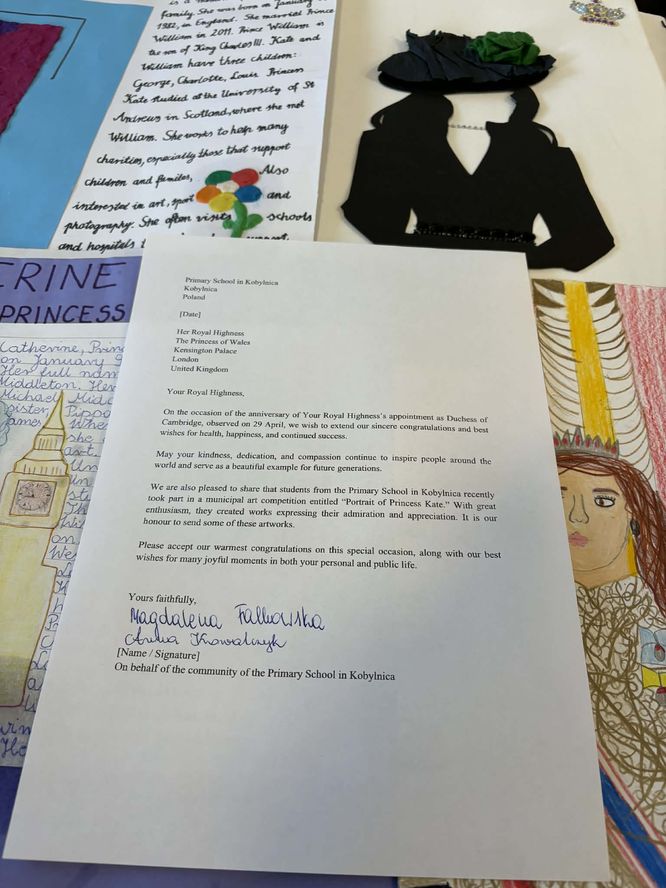 family. She was born on January 9
1982, in England. She married Prince
William in 2011. Prince William is
the son of King Charles III. Kate and
William have three children:
George, Charlotte, Louis. Princess
Kate studied at the University of St
Andrews in Scotland, where she met
William. She works to help many
charities, especially those that support
children and familes, Also
interested in art, sport and
photography. She often visits schools
and hospitals
support,
CRINE
PRINCESS
Catherine, Prin
on January 9
Her full nam
Middleton. Her
Michael Midd
sister, Pippa
James. Whe
she
art.
Un
Primary School in Kobylnica
Kobylnica
Poland
[Date]
Her Royal Highness
The Princess of Wales
Kensington Palace
London
United Kingdom
Your Royal Highness,
On the occasion of the anniversary of Your Royal Highness's appointment as Duchess of
Cambridge, observed on 29 April, we wish to extend our sincere congratulations and best
wishes for health, happiness, and continued success.
May your kindness, dedication, and compassion continue to inspire people around the
world and serve as a beautiful example for future generations.
We are also pleased to share that students from the Primary School in Kobylnica recently
took part in a municipal art competition entitled “Portrait of Princess Kate.” With great
enthusiasm, they created works expressing their admiration and appreciation. It is our
honour to send some of these artworks.
Please accept our warmest congratulations on this special occasion, along with our best
wishes for many joyful moments in both your personal and public life.
Yours faithfully,
Magdalena Falkowska
Kowalczyk
[Name / Signature]
On behalf of the community of the Primary School in Kobylnica